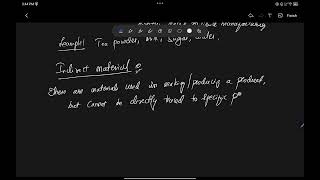 2:44 PM
Finish
manufacturing
Example! Tea powder, milk, sugar, water.
Indirect material :
These are materials used in making/producing a product,
but cannot be directly traced to specific P